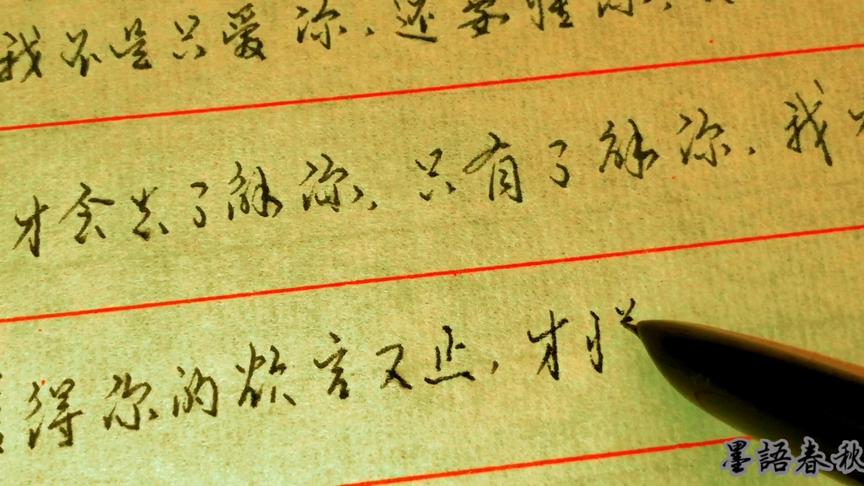 我不是只爱你，还要懂你，
才会去了解你，只有了解你，我
得你的欲言又止，才
墨語春秋